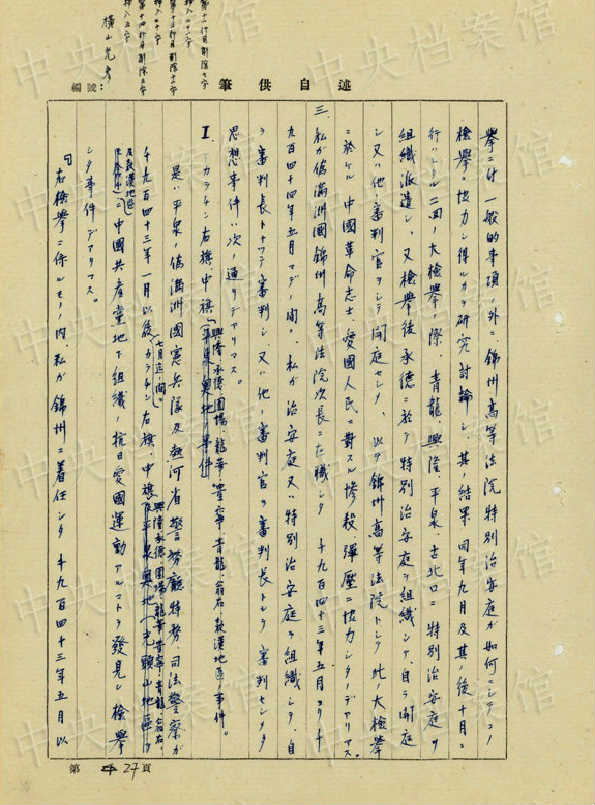 横山光彦
編號：
筆供自述
挙ニ付一般的事項ノ外ニ錦州高等法院特別治安庭ガ如何ニシテコノ
検挙ニ協力シ得ルカヲ研究討論シ、其ノ結果、同年九月及其ノ後十月ニ
行ハレタル二回ノ大検挙ノ際、青龍、興隆、平泉、古北口ニ特別治安庭ヲ
組織派遣シ、又検挙後承徳ニ於テ特別治安庭ヲ組織シテ、自ラ開庭
シ又ハ他ノ審判官ヲシテ開庭セシメ、以テ錦州高等法院トシテ此ノ大検挙
ニ於ケル中國革命志士、愛國人民ニ対スル惨殺、弾圧ニ協力シタノデアリマス。
三、私ガ偽満洲國錦州高等法院次長ニ在職シタ千九百四十三年五月ヨリ千
九百四十四年五月マデノ間、私ガ治安庭又ハ特別治安庭ヲ組織シタ、自
ラ審判長トナッテ審判シ、又ハ他ノ審判官ヲ審判長トシテ審判セシメタ
思想事件ハ次ノ通リデアリマス。
I. カラチン右旗、中旗、興隆、承徳、圍場、龍華、豊寧、青龍、翁右、敖漢地區ノ事件。
是ハ平泉ノ偽満洲國憲兵隊及熱河省警務廳特務、司法警察ガ
千九百四十三年一月以後七月迄ノ間ニカラチン右旗、中旗、興隆、承徳、圍場、龍華、豊寧、青龍、翁右、
及敖漢地區ニ中國共産党地下組織ノ抗日愛國運動アルコトヲ発見シ検挙
シタ事件デアリマス。
右検挙ニ係ルモノノ内私ガ錦州ニ着任シタ千九百四十三年五月以
第27頁
中央档案馆